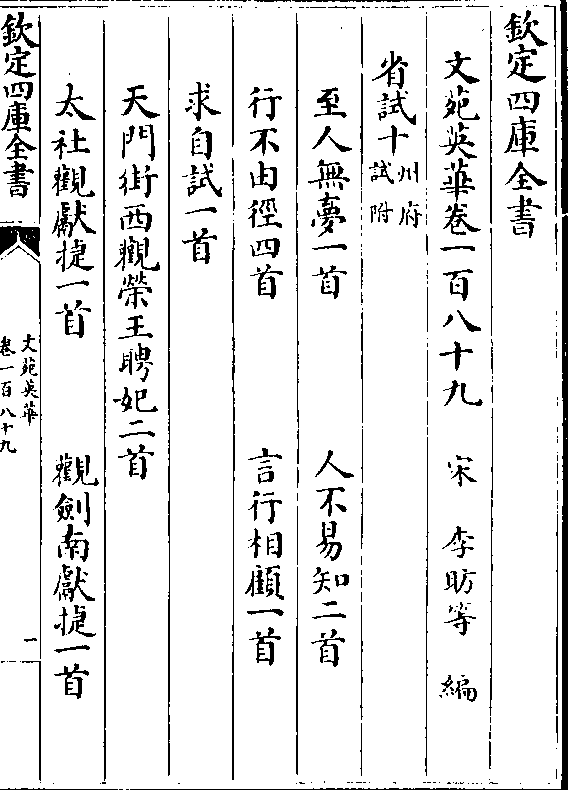 欽定四庫全書
文苑英華卷一百八十九 宋 李昉等 編
省試十 州府試附
至人無夢一首 人不易知二首
行不由徑四首 言行相顧一首
求自試一首
天門街西觀榮王聘妃二首
太社觀獻捷一首 觀劍南獻捷一首
欽定四庫全書 文苑英華 卷一百八十九 一